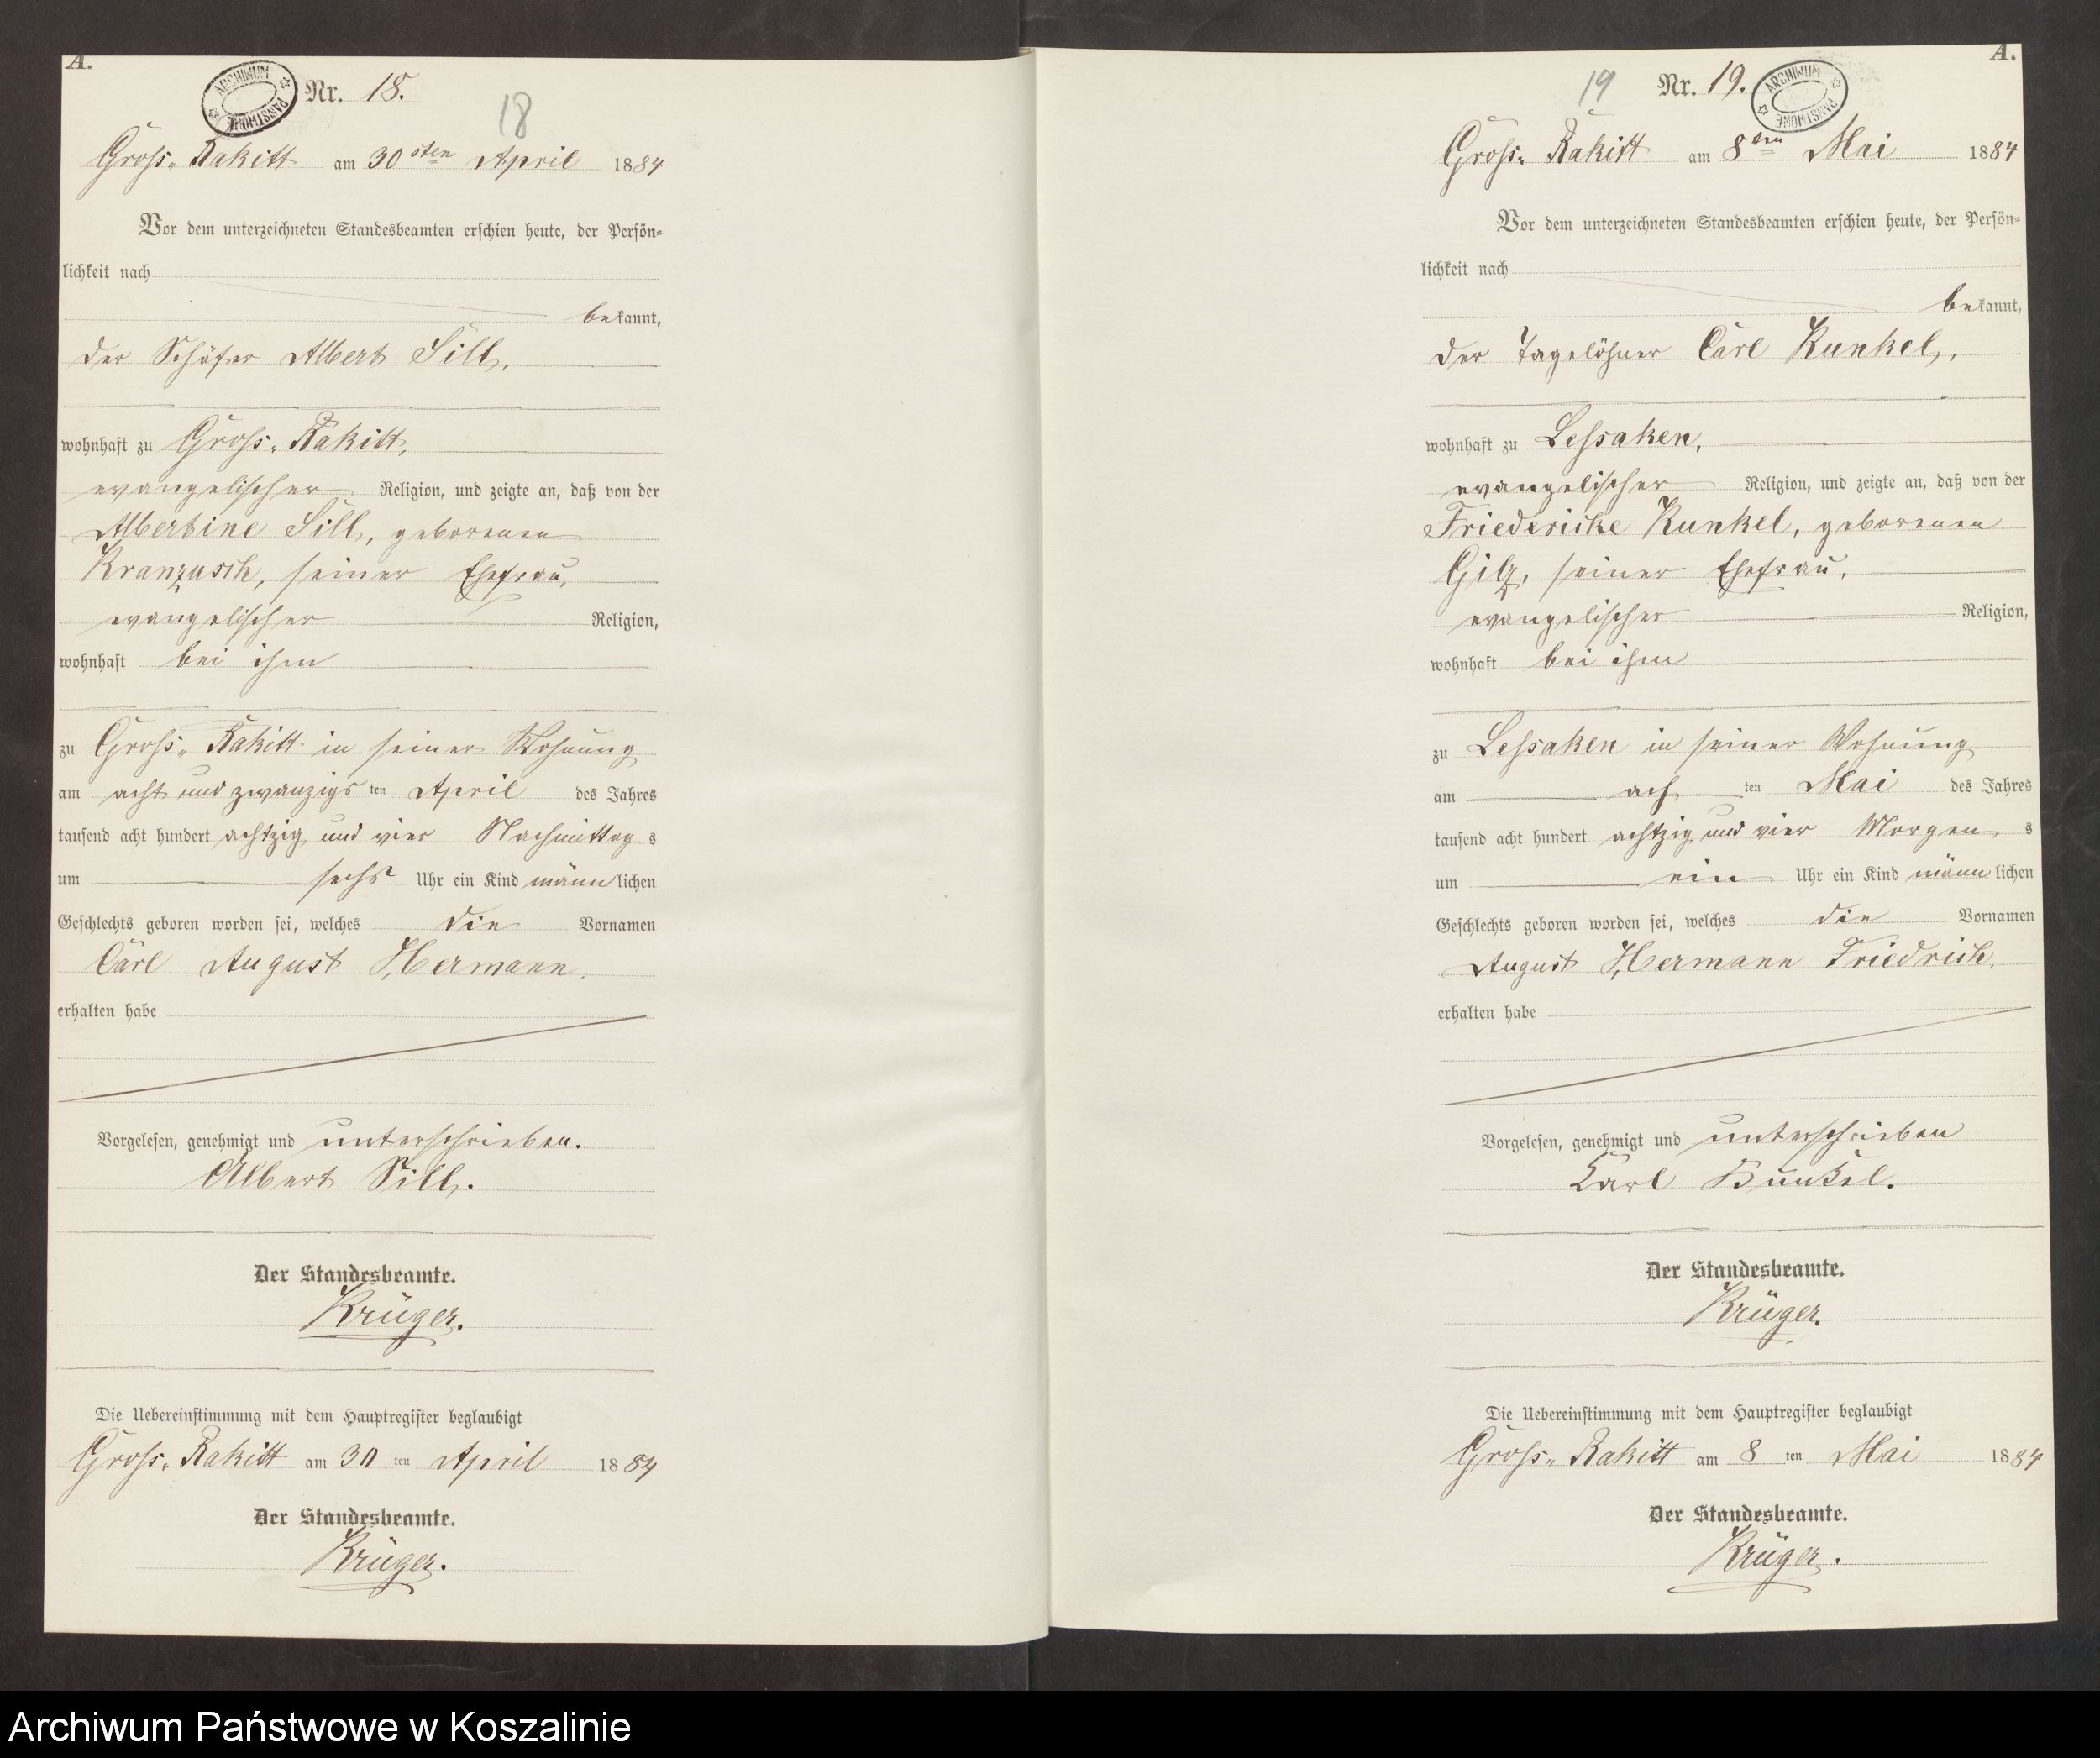 A.
ARCHIWUM PAŃSTWOWE
Nr. 18.
18
Gross-Rakitt am 30sten April 1884
Vor dem unterzeichneten Standesbeamten erschien heute, der Persön-
lichkeit nach
bekannt,
der Schäfer Albert Sill,
wohnhaft zu Gross-Rakitt,
evangelischer Religion, und zeigte an, daß von der
Albertine Sill, geborenen
Kranzusch, seiner Ehefrau,
evangelischer Religion,
wohnhaft bei ihm
zu Gross-Rakitt in seiner Wohnung
am acht und zwanzigsten April des Jahres
tausend acht hundert achtzig und vier Nachmittags
um sechs Uhr ein Kind männlichen
Geschlechts geboren worden sei, welches die Vornamen
Carl August Hermann,
erhalten habe
Vorgelesen, genehmigt und unterschrieben.
Albert Sill.
Der Standesbeamte.
Krüger.
Die Uebereinstimmung mit dem Hauptregister beglaubigt
Gross-Rakitt am 30 ten April 1884
Der Standesbeamte.
Krüger.
A.
19 Nr. 19.
ARCHIWUM PAŃSTWOWE
Gross-Rakitt am 8ten Mai 1884
Vor dem unterzeichneten Standesbeamten erschien heute, der Persön-
lichkeit nach
bekannt,
der Tagelöhner Carl Kunkel,
wohnhaft zu Lessaken,
evangelischer Religion, und zeigte an, daß von der
Friedericke Kunkel, geborenen
Gilz, seiner Ehefrau,
evangelischer Religion,
wohnhaft bei ihm
zu Lessaken in seiner Wohnung
am ach ten Mai des Jahres
tausend acht hundert achtzig und vier Morgens
um ein Uhr ein Kind männlichen
Geschlechts geboren worden sei, welches die Vornamen
August Hermann Friedrich
erhalten habe
Vorgelesen, genehmigt und unterschrieben
Karl Kunkel.
Der Standesbeamte.
Krüger.
Die Uebereinstimmung mit dem Hauptregister beglaubigt
Gross-Rakitt am 8 ten Mai 1884
Der Standesbeamte.
Krüger.
Archiwum Państwowe w Koszalinie